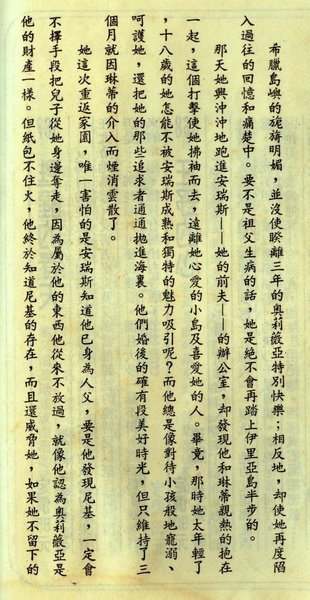 希臘島嶼的旖旎明媚，並沒使睽離三年的奧莉薇亞特別快樂；相反地，却使她再度陷
入過往的回憶和痛楚中。要不是祖父生病的話，她是絕不會再踏上伊里亞島半步的。
那天她興沖沖地跑進安瑞斯——她的前夫——的辦公室，却發現他和琳蒂親熱的抱在
一起，這個打擊使她拂袖而去，遠離她心愛的小島及喜愛她的人。畢竟，那時她太年輕了
，十八歲的她怎能不被安瑞斯成熟和獨特的魅力吸引呢？而他總是像對待小孩般地寵溺、
呵護她，還把她的那些追求者通通拋進海裏。他們婚後的確有段美好時光，但只維持了三
個月就因琳蒂的介入而煙消雲散了。
她這次重返家園，唯一害怕的是安瑞斯知道他已身為人父，要是他發現尼基，一定會
不擇手段把兒子從她身邊奪走，因為屬於他的東西他從來不放過，就像他認為奧莉薇亞是
他的財產一樣。但紙包不住火，他終於知道尼基的存在，而且還威脅她，如果她不留下的